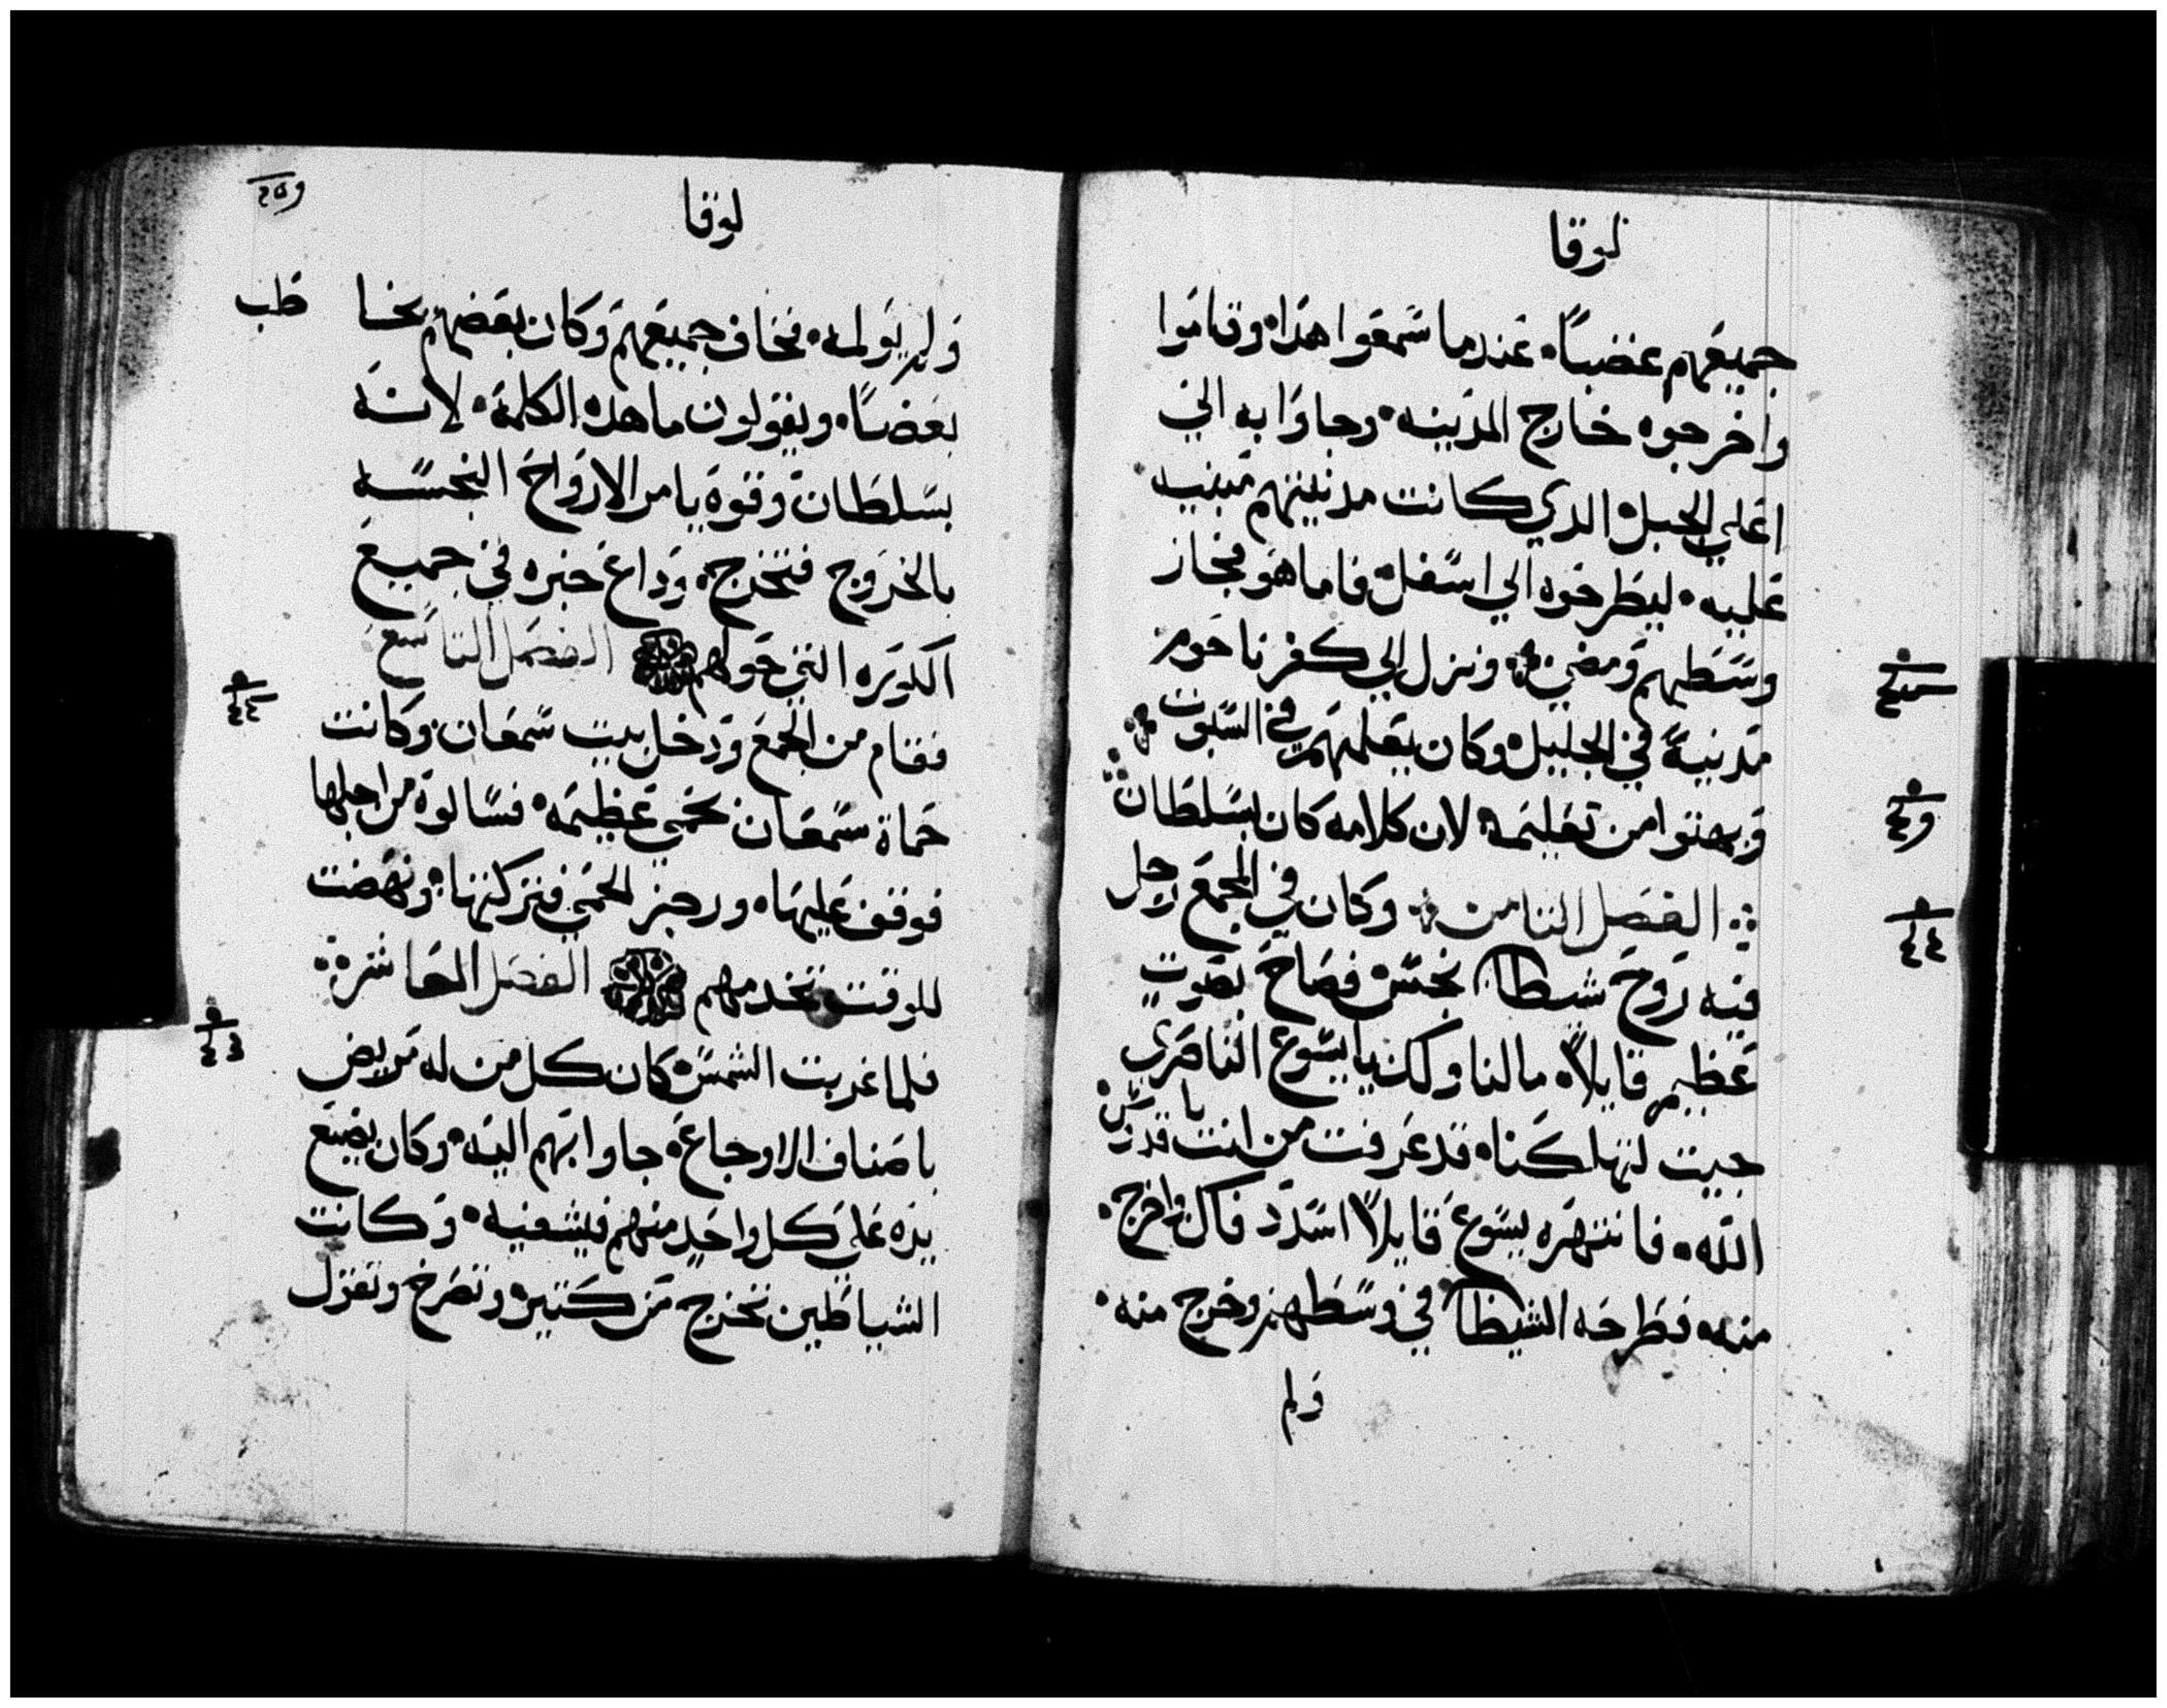 لوقا
جميعهم غضباً. عندما سمعوا هذا. وقاموا
واخرجوه خارج المدينه. وجاوا به الي
اعلي الجبل الذي كانت مدينتهم مبنيه
عليه. ليطرحوه الي اسفل. فاما هو فجاز
وسطهم ومضي. ونزل الي كفرناحوم
مدينة في الجليل. وكان يعلمهم في السبوت
وبهتوا من تعليمه لان كلامه كان بسلطان
الفصل الثامن وكان في المجمع رجل
فيه روح شيطان نجس فصاح بصوت
عظيم قايلاً. ما لنا ولك يا يسوع الناصري
جيت لتهلكنا. قد عرفت من انت يا قدوس
الله. فانتهره يسوع قايلاً اسدد فاك واخرج.
منه. فطرحه الشيطان في وسطهم وخرج منه.
ولم
لوقا
ولم يولمه. فخاف جميعهم وكان بعضهم يخا
طب
بعضاً. ويقولون ما هذه الكلمة. لانه
بسلطان وقوة يامر الارواح النجسه
بالخروج فتخرج. وداع خبره في جميع
الكوره التي حولهم الفصل التاسع
فقام من الجمع ودخل بيت سمعان. وكانت
حماة سمعان بحمي عظيمه. فسالوه من اجلها
فوقف عليها. وزجر الحمي فتركتها. ونهضت
للوقت تخدمهم الفصل العاشر
فلما غربت الشمس كان كل من له مريض
باصناف الاوجاع. جاوا بهم اليه. وكان يضع
يده على كل واحد منهم فيشفيه. وكانت
الشياطين تخرج من كتيره وتصرخ وتقول